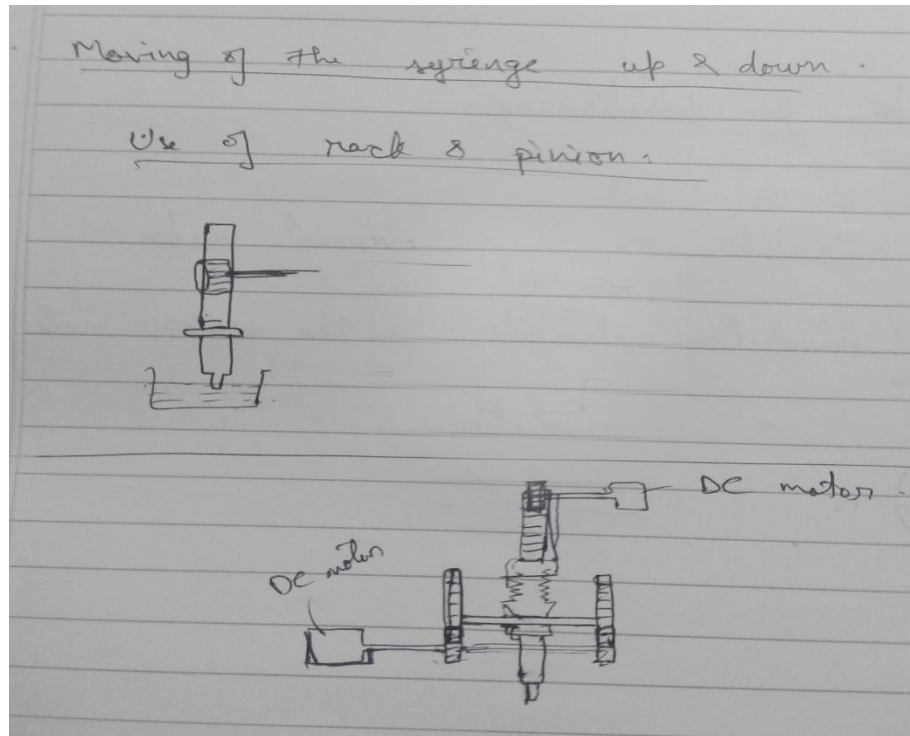 Moving of the syrienge up & down.
Use of rack & pinion.
DC motor.
DC motor